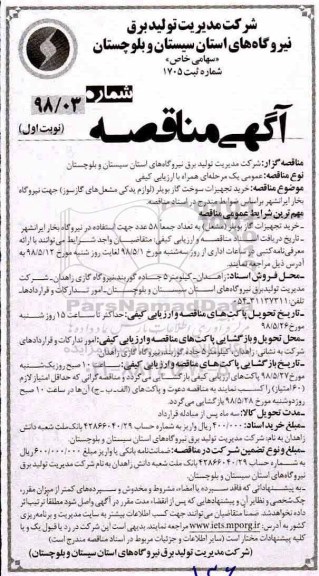 شرکت مدیریت تولید برق
نیروگاه‌های استان سیستان و بلوچستان
«سهامی خاص»
شماره ثبت ۱۷۰۵
شماره ۹۸/۰۳
آگهی مناقصه (نوبت اول)
مناقصه گزار: شرکت مدیریت تولید برق نیروگاه‌های استان سیستان و بلوچستان
نوع مناقصه: عمومی یک مرحله‌ای همراه با ارزیابی کیفی
موضوع مناقصه: خرید تجهیزات سوخت گاز بویلر (لوازم یدکی مشعل‌های گازسوز) جهت نیروگاه
بخار ایرانشهر براساس ضوابط مندرج در اسناد مناقصه.
مهم‌ترین شرایط عمومی مناقصه
ـ خرید تجهیزات گاز بویلر (مشعل) به تعداد جمعا ۵۸ عدد جهت استفاده در نیروگاه بخار ایرانشهر
ـ تاریخ دریافت اسناد مناقصه و ارزیابی کیفی: متقاضیان واجد شرایط می‌توانند با ارائه
معرفی‌نامه کتبی و ساعات اداری از روز سه‌شنبه مورخ ۹۸/۵/۱ لغایت روز شنبه مورخ ۹۸/۵/۱۲ به
آدرس ذیل مراجعه نمایند.
ـ محل فروش اسناد: زاهدان ـ کیلومتر ۵ جاده گوربند نیروگاه گازی زاهدان ـ شرکت
مدیریت تولید برق نیروگاه‌های استان سیستان و بلوچستان ـ امور تدارکات و قراردادها
تلفن: ۰۵۴-۳۱۱۳۷۳۱۱
ـ تاریخ تحویل پاکت‌های مناقصه و ارزیابی کیفی: حداکثر تا ساعت ۱۵ روز شنبه
مورخ ۹۸/۵/۲۶
ـ محل تحویل و بازگشایی پاکت‌های مناقصه و ارزیابی کیفی: امور تدارکات و قراردادهای
شرکت به نشانی: زاهدان، کیلومتر ۵ جاده گوربند، نیروگاه گازی زاهدان
ـ تاریخ بازگشایی پاکت‌های مناقصه و ارزیابی کیفی: ساعت ۱۰ صبح روز یک‌شنبه
مورخ ۹۸/۵/۲۷ پاکت‌های ارزیابی کیفی بازگشایی می‌گردد و مناقصه گرانی که حداقل امتیاز لازم
(۶۰ امتیاز) را کسب نمایند به مناقصه دعوت و پاکت‌های (الف ـ ب ـ ج) آن‌ها در ساعت ۱۰ صبح
روز دوشنبه مورخ ۹۸/۵/۲۸ بازگشایی می‌گردد.
ـ مدت تحویل کالا: سه ماه پس از مبادله قرارداد
ـ مبلغ خرید اسناد: ۴۰۰/۰۰۰ ریال واریز به شماره حساب ۴۲۸۶۶۰۴۰/۲۹ بانک ملت شعبه دانش
زاهدان به نام، شرکت مدیریت تولید برق نیروگاه‌های استان سیستان و بلوچستان.
ـ مبلغ و نوع تضمین شرکت در مناقصه: ضمانتنامه بانکی یا واریز مبلغ ۶۰۰/۰۰۰/۰۰۰ ریال
به شماره حساب ۴۲۸۶۶۰۴۰/۲۹ بانک ملت شعبه دانش زاهدان به نام شرکت مدیریت تولید برق
نیروگاه‌های استان سیستان و بلوچستان.
ـ به پیشنهاداتی که فاقد سپرده یا امضاء، مشروط و مخدوش و سپرده‌های کمتر از میزان مقرر،
چک شخصی و نظایر آن و پیشنهاد‌هایی که پس از انقضاء مدت مقرر در آگهی واصل شود مطلقا ترتیب اثر
داده نخواهد شد. ضمنا متقاضیان می‌توانند جهت کسب اطلاعات بیشتر به سایت مدیریت و برنامه‌ریزی
کشور به آدرس: www.iets.mporg.ir مراجعه نمایند. بدیهی است این شرکت در رد یا قبول یک و یا
کلیه پیشنهادات مختار است (سایر اطلاعات و جزئیات مربوط در اسناد مناقصه مندرج است)
(شرکت مدیریت تولید برق نیروگاه‌های استان سیستان و بلوچستان)